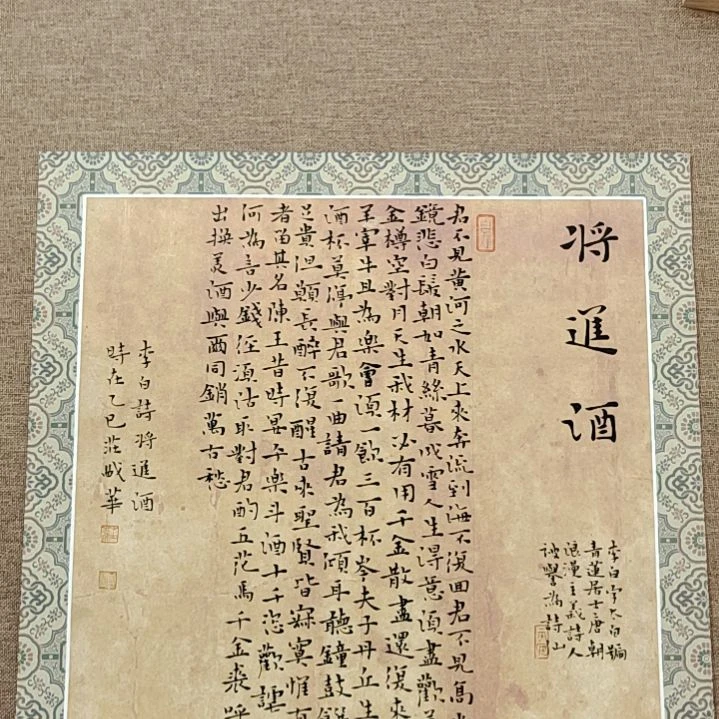 将進酒
李白字太白號
青蓮居士唐朝
浪漫主義詩人
被譽為詩仙
君不見黃河之水天上來奔流到海不復回君不見高
鏡悲白髮朝如青絲暮成雪人生得意須盡歡
金樽空對月天生我材必有用千金散盡還復來
羊宰牛且為樂會須一飲三百杯岑夫子丹丘生
酒杯莫停與君歌一曲請君為我傾耳聽鐘鼓饌
足貴但願長醉不復醒古來聖賢皆寂寞惟有
者留其名陳王昔時宴平樂斗酒十千恣歡謔
何為言少錢徑須沽取對君酌五花馬千金裘呼
出換美酒與爾同銷萬古愁
李白詩将進酒
時在乙巳莊華